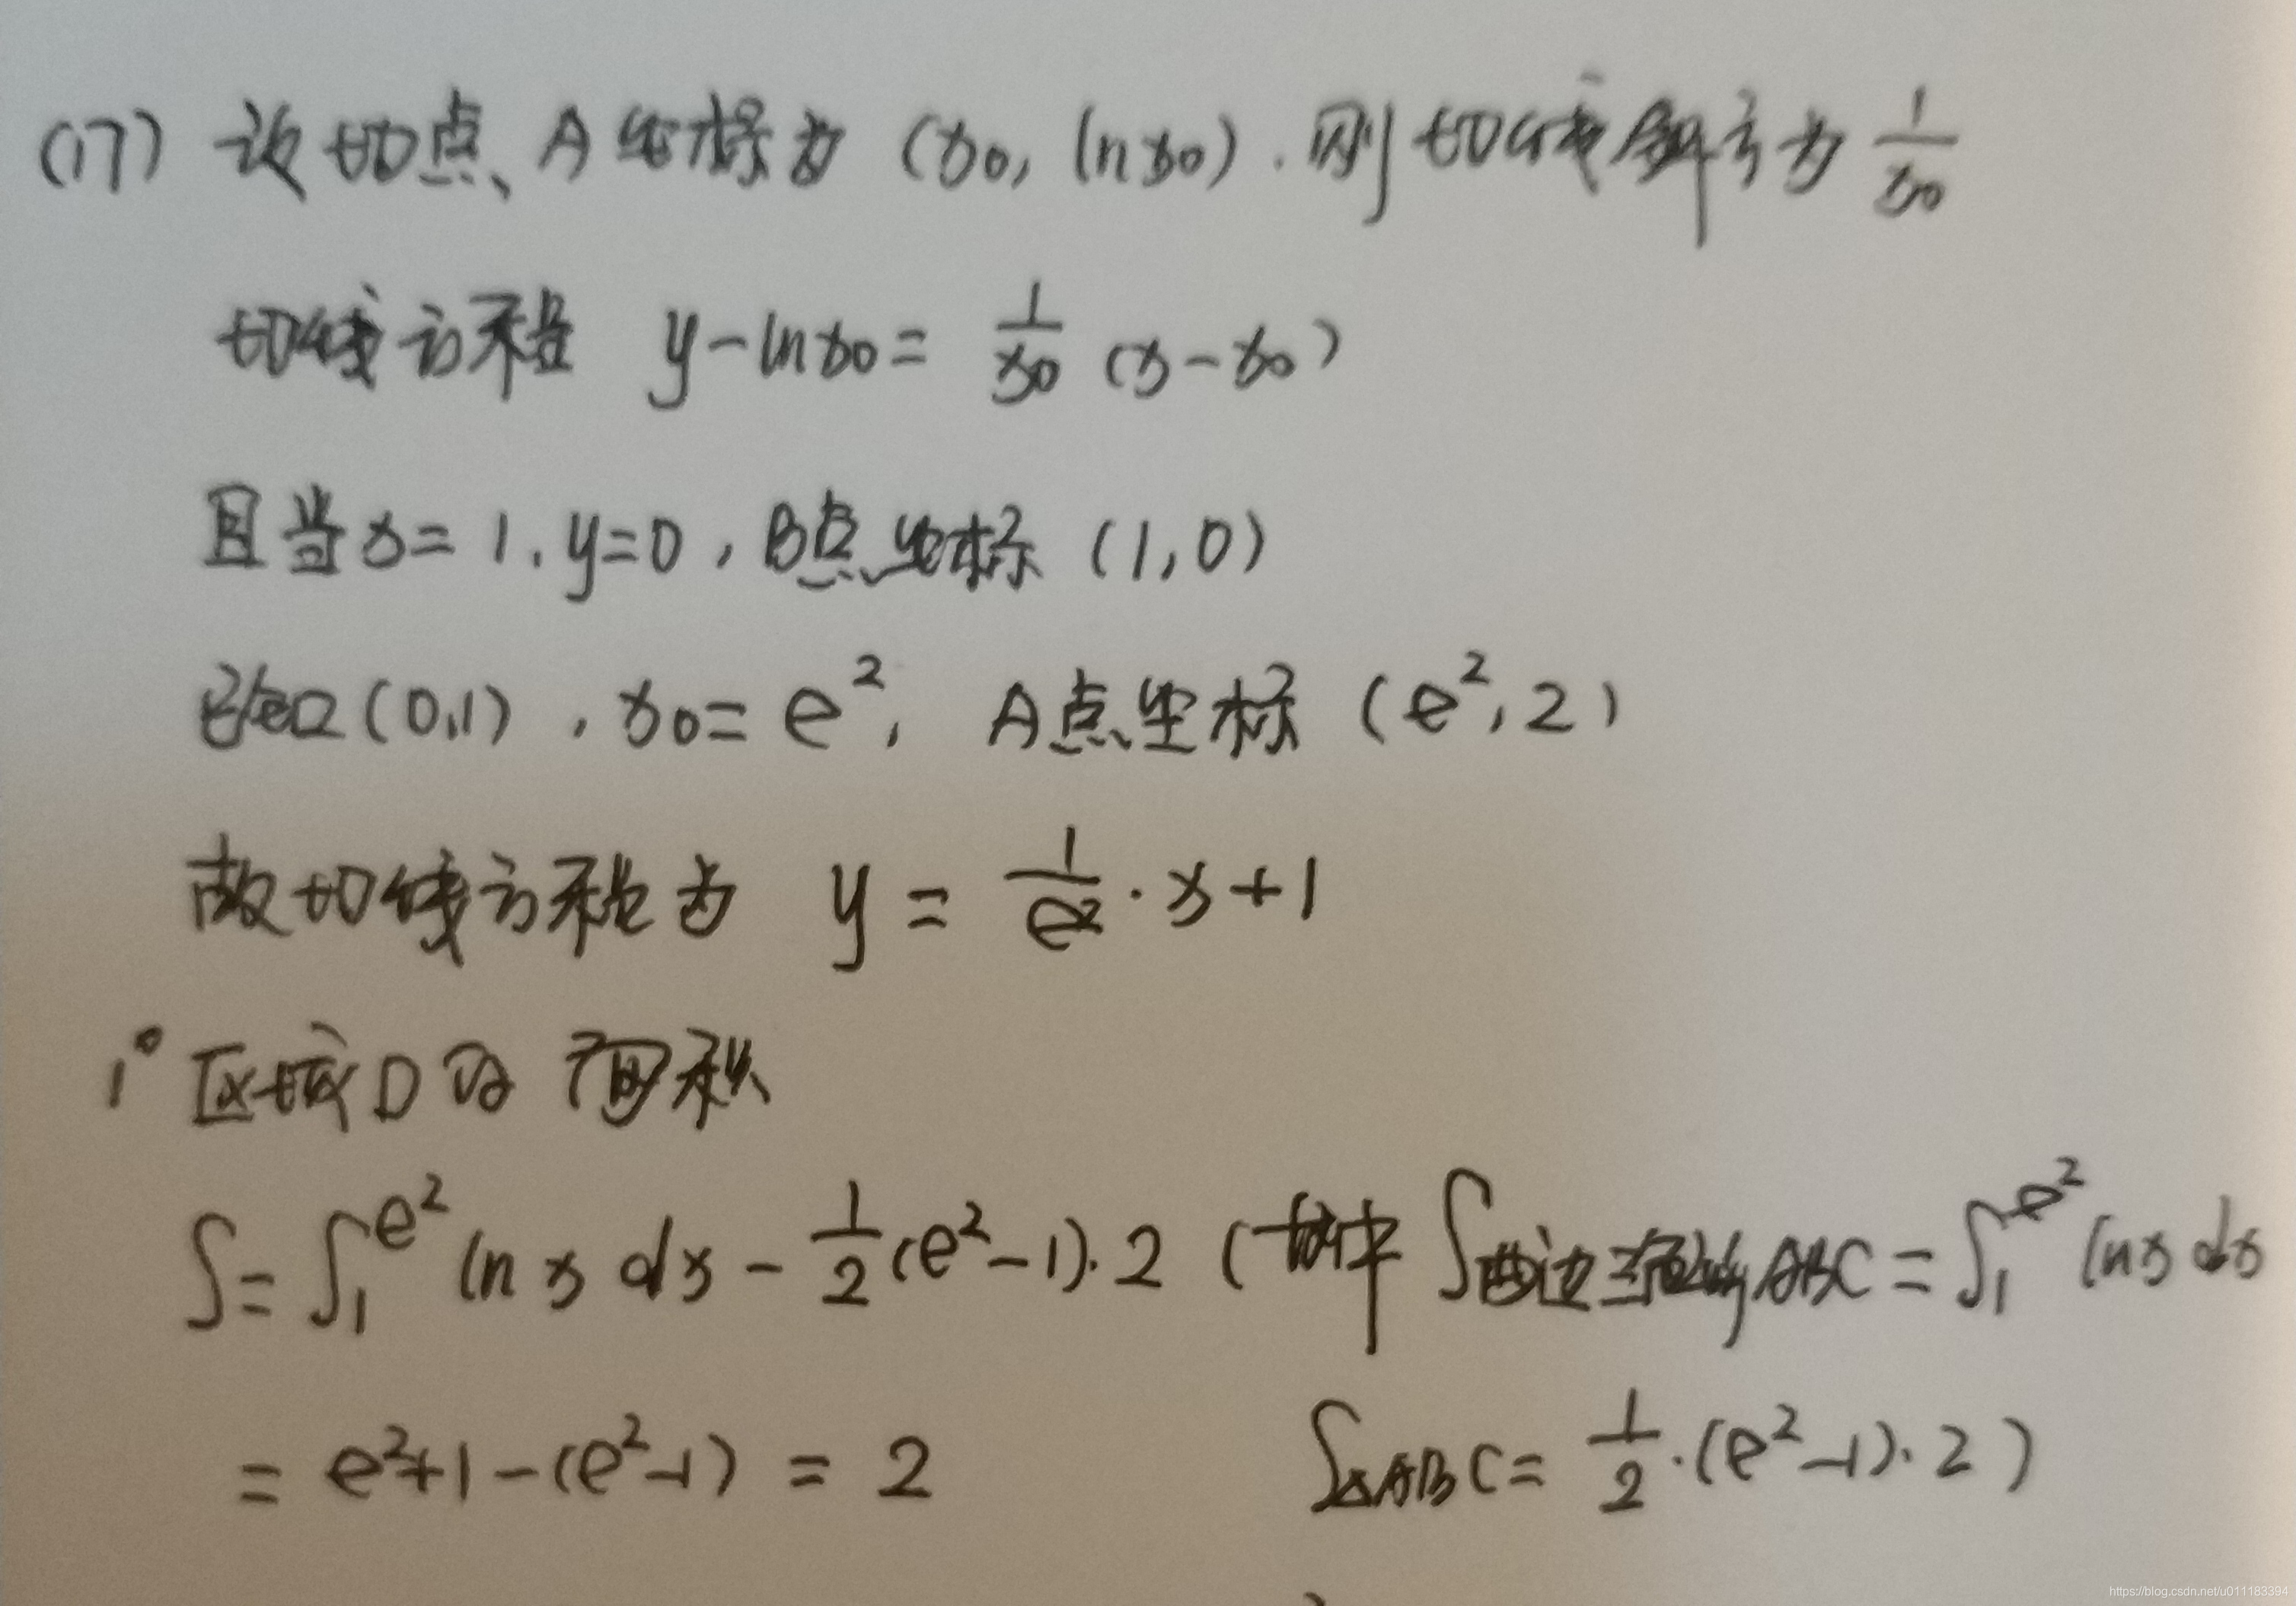 (17) 设切点A坐标为 (x₀, ln x₀). 则切线斜率为 1/x₀
切线方程 y - ln x₀ = 1/x₀ (x - x₀)
且当x = 1, y = 0, B点坐标 (1, 0)
已知(0,1), x₀ = e², A点坐标 (e², 2)
故切线方程为 y = 1/e² · x + 1
1° 区域D的面积
S = ∫₁^e² ln x dx - 1/2 (e² - 1)·2 (其中 S曲边三角形ABC = ∫₁^e² ln x dx
= e² + 1 - (e² - 1) = 2 S△ABC = 1/2 · (e² - 1)·2 )
https://blog.csdn.net/u011183394